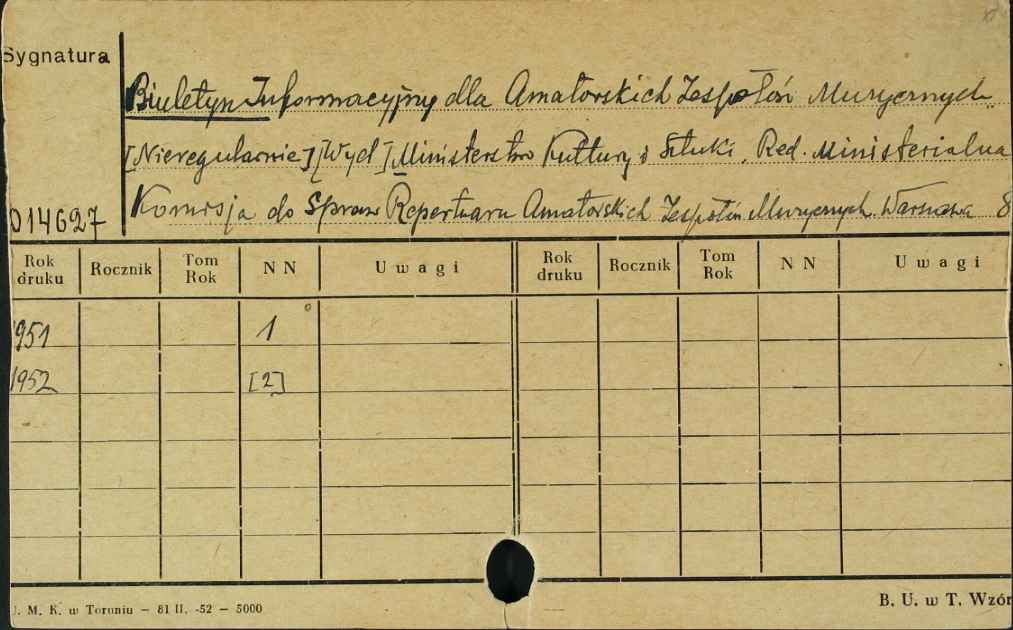 Sygnatura
Biuletyn Informacyjny dla Amatorskich Zespołów Muzycznych.
[Nieregularnie] [Wyd] Ministerstwo Kultury i Sztuki. Red. Ministerialna
014627 Komisja do Spraw Repertuaru Amatorskich Zespołów Muzycznych. Warszawa 8
Rok druku Rocznik Tom Rok N N Uwagi Rok druku Rocznik Tom Rok N N Uwagi
1951 1
1952 [2]
U. M. K. w Toruniu — 81 II. -52 — 5000
B. U. w T. Wzór